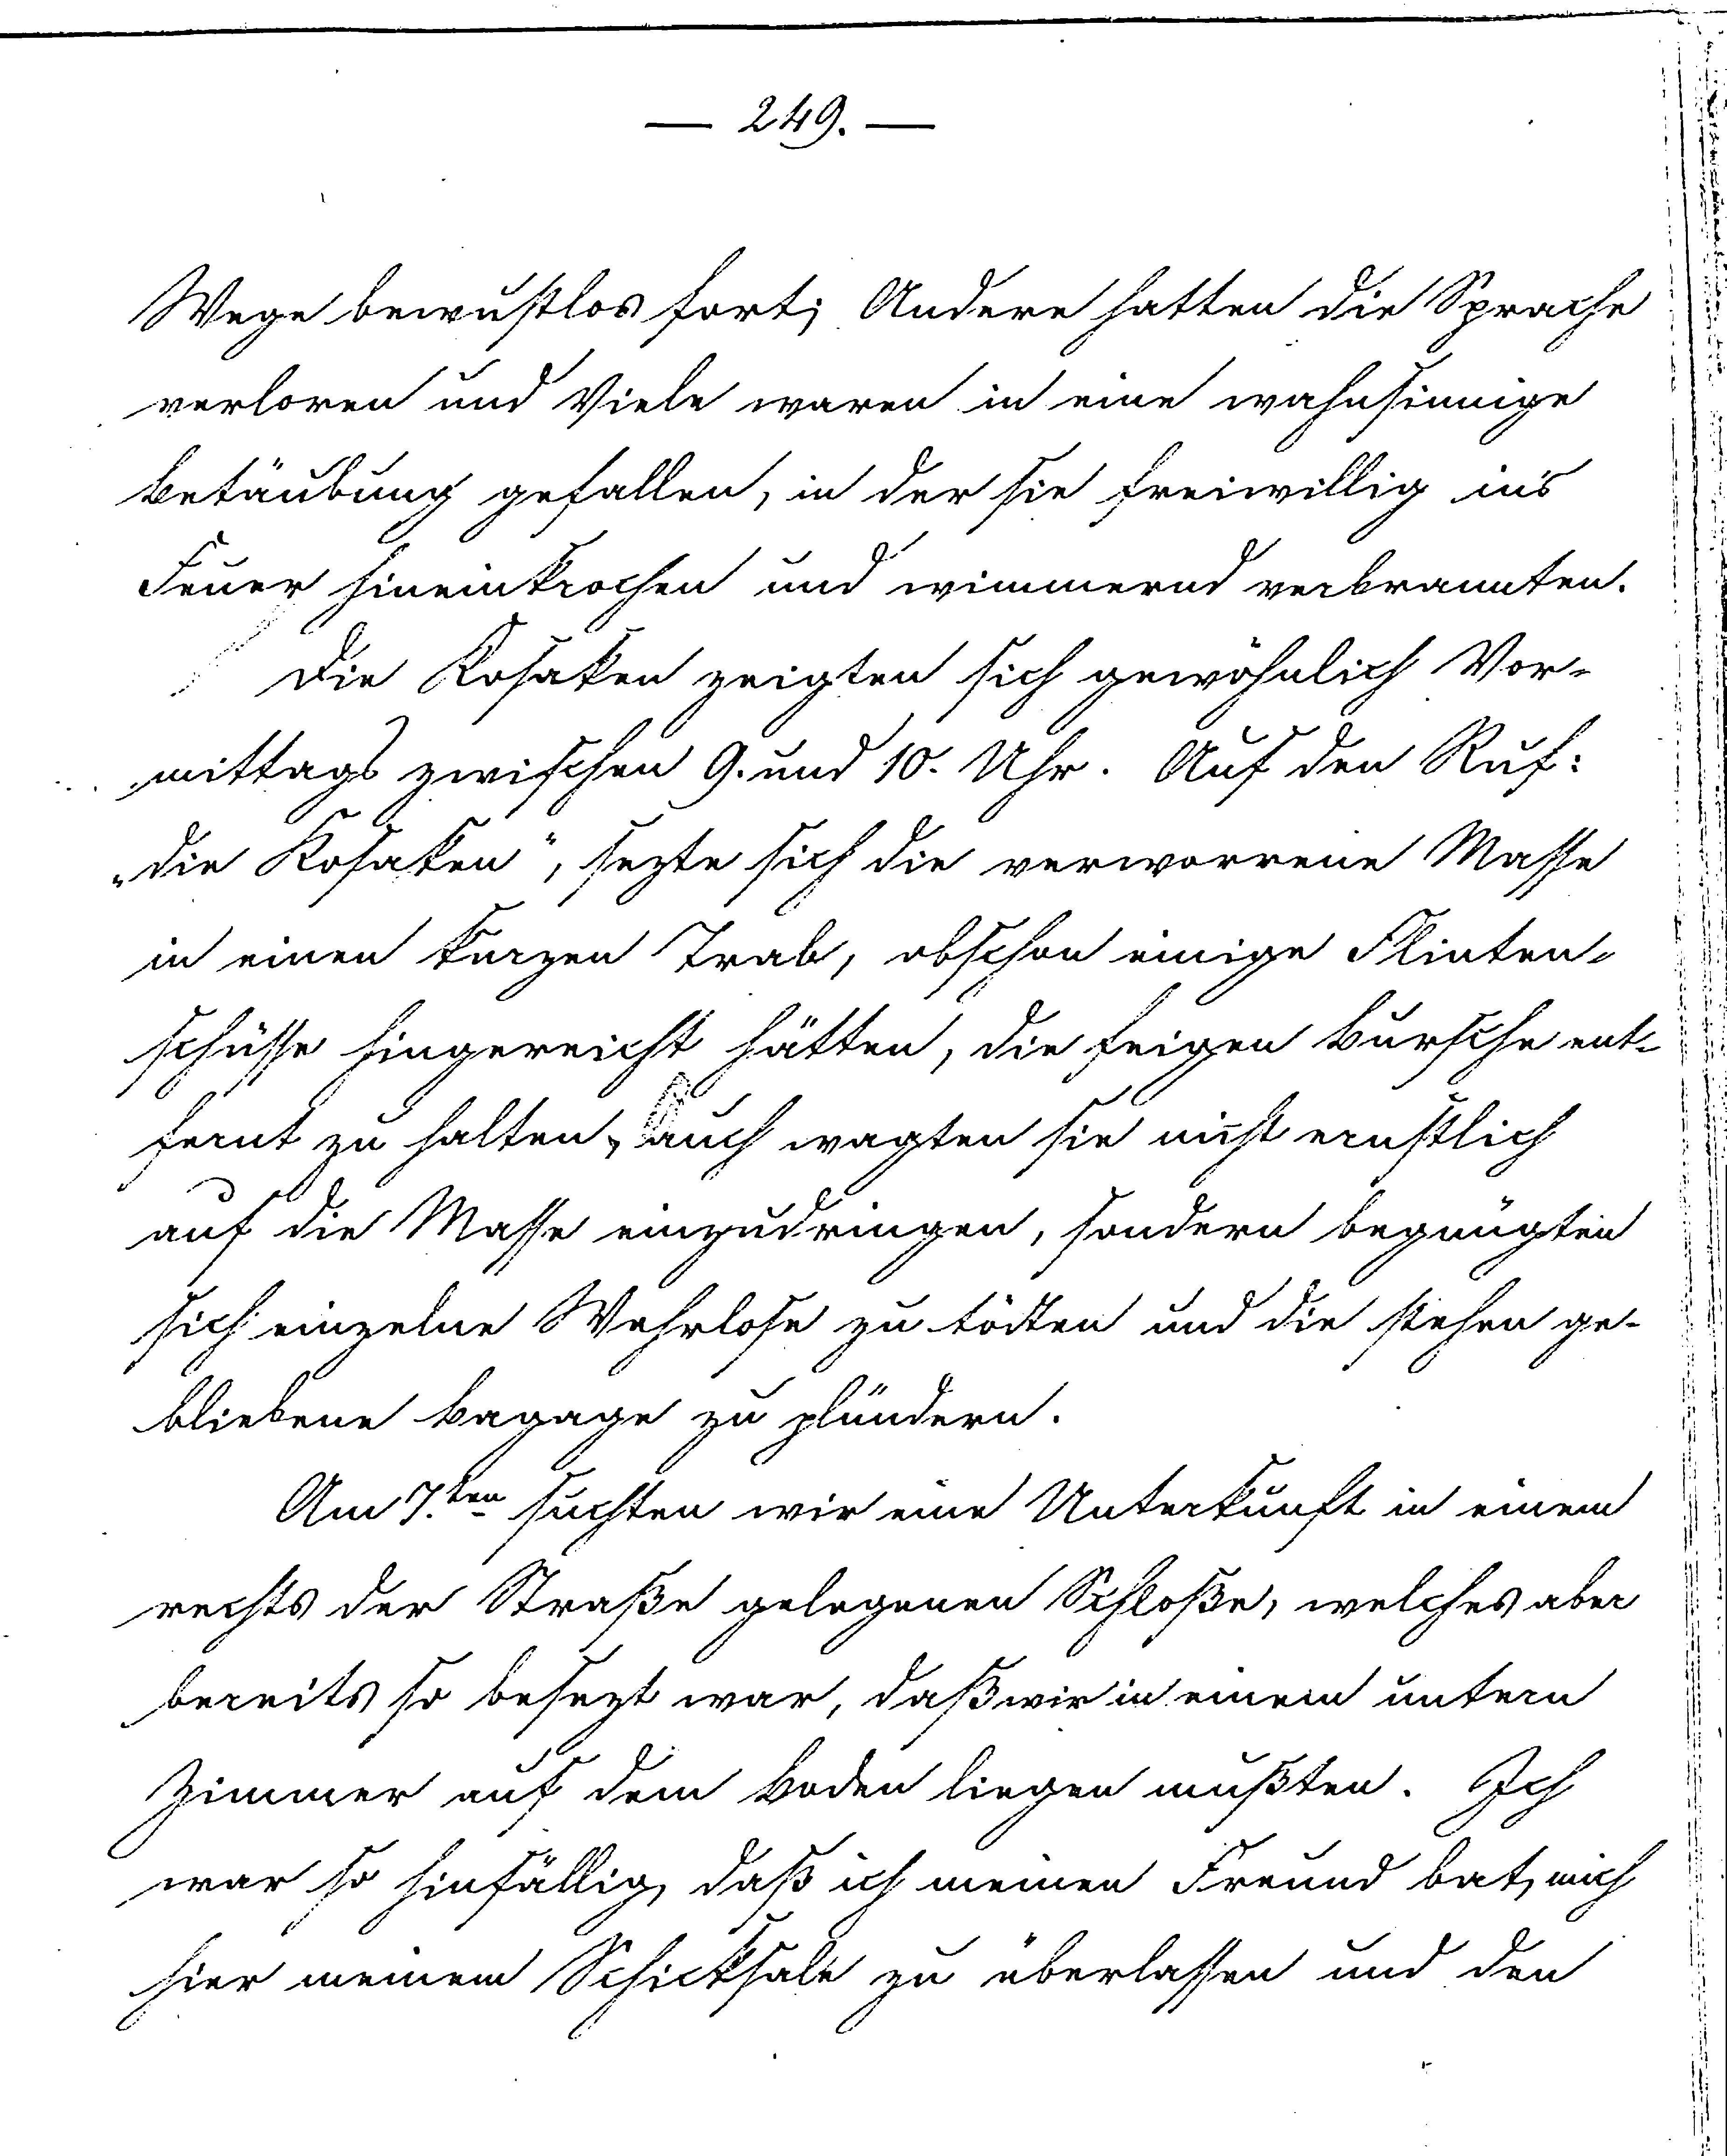 — 249. —
Wege bewußtlos fort; Andere hatten die Sprache
verloren und Viele waren in eine wahnsinnige
Betäubung gefallen, in der sie freiwillig in's
Feuer hineinkrochen und wimmernd verbrannten.
Die Kosaken zeigten sich gewöhnlich Vor-
mittags zwischen 9. und 10. Uhr. Auf den Ruf:
„die Kosaken", sezte sich die verworrene Masse
in einen kurzen Trab, obschon einige Flinten-
schüsse hingereicht hätten, die feigen Bursche ent-
fernt zu halten, auch wagten sie nicht ernstlich
auf die Masse einzudringen, sondern begnügten
sich einzelne Wehrlose zu tödten und die stehen ge-
bliebene Bagage zu plündern.
Am 7.ten suchten wir eine Unterkunft in einem
rechts der Straße gelegenen Schloße, welches aber
bereits so besezt war, daß wir in einem untern
Zimmer auf dem Boden liegen mußten. Ich
war so hinfällig, daß ich meinen Freund bat, mich
hier meinem Schicksale zu überlassen und den